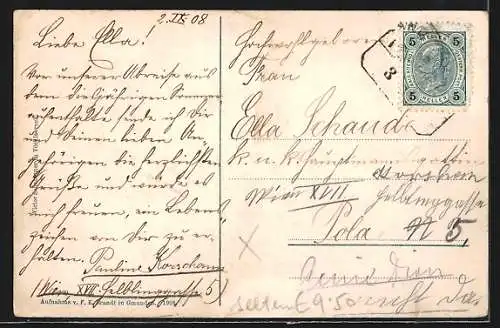 2. IX. 08
Liebe Ella!
Vor unserer Abreise aus
dem diesjährigen Sommer
aufenthalte sende ich Dir
und Deinen lieben An-
gehörigen die herzlichsten
Grüße und würde es
mich freuen, ein Lebens
zeichen von Dir zu er-
halten. Pauline Korschann
(Wien, XVII. Helblinggasse 5)
Aufnahme v. F. E. Brandt in Gmunden. 1908
Hochwohlgeboren
Frau
Ella Schauda
k. u. k. Hauptmannsgattin
Wien XVII
Helblinggasse
Pola N 5,
5 5
5 HELLER 5